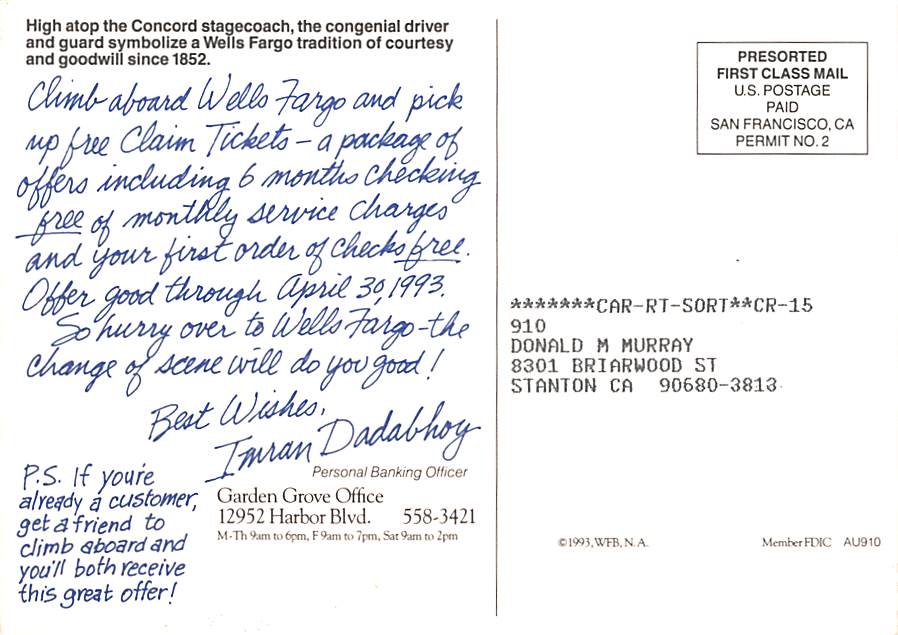 High atop the Concord stagecoach, the congenial driver
and guard symbolize a Wells Fargo tradition of courtesy
and goodwill since 1852.
Climb aboard Wells Fargo and pick
up free Claim Tickets – a package of
offers including 6 months checking
free of monthly service charges
and your first order of checks free.
Offer good through April 30, 1993.
So hurry over to Wells Fargo – the
change of scene will do you good!
Best Wishes,
Imran Dadabhoy
Personal Banking Officer
Garden Grove Office
12952 Harbor Blvd. 558-3421
M-Th 9am to 6pm, F 9am to 7pm, Sat 9am to 2pm
P.S. If you're
already a customer,
get a friend to
climb aboard and
you'll both receive
this great offer!
PRESORTED
FIRST CLASS MAIL
U.S. POSTAGE
PAID
SAN FRANCISCO, CA
PERMIT NO. 2
*******CAR-RT-SORT**CR-15
910
DONALD M MURRAY
8301 BRIARWOOD ST
STANTON CA 90680-3813
©1993, WFB, N.A.
Member FDIC AU910